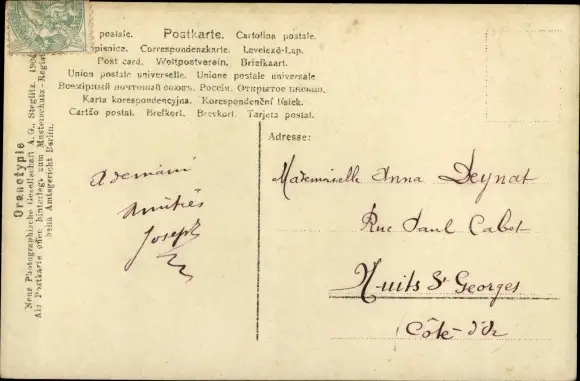 postale. Postkarte. Cartolina postale.
Correspondenzkarte. Levelező-Lap.
Post card. Weltpostverein. Briefkaart.
Union postale universelle. Unione postale universale
Всемірный почтовый союзъ. Россія. Открытое письмо.
Karta korespondencyjna. Korespondenční lístek.
Cartão postal. Brefkort. Brevkort. Tarjeta postal.
Orthotypie
Neue Photographische Gesellschaft A. G., Steglitz. 190
Als Postkarte offen hinterlegt zum Musterschutz-Regist
beim Amtsgericht Berlin.
Amitiés
Joseph
Adresse:
Mademoiselle Anna Deynat
Rue Paul Cabet
Nuits St Georges
Côte-d'Or